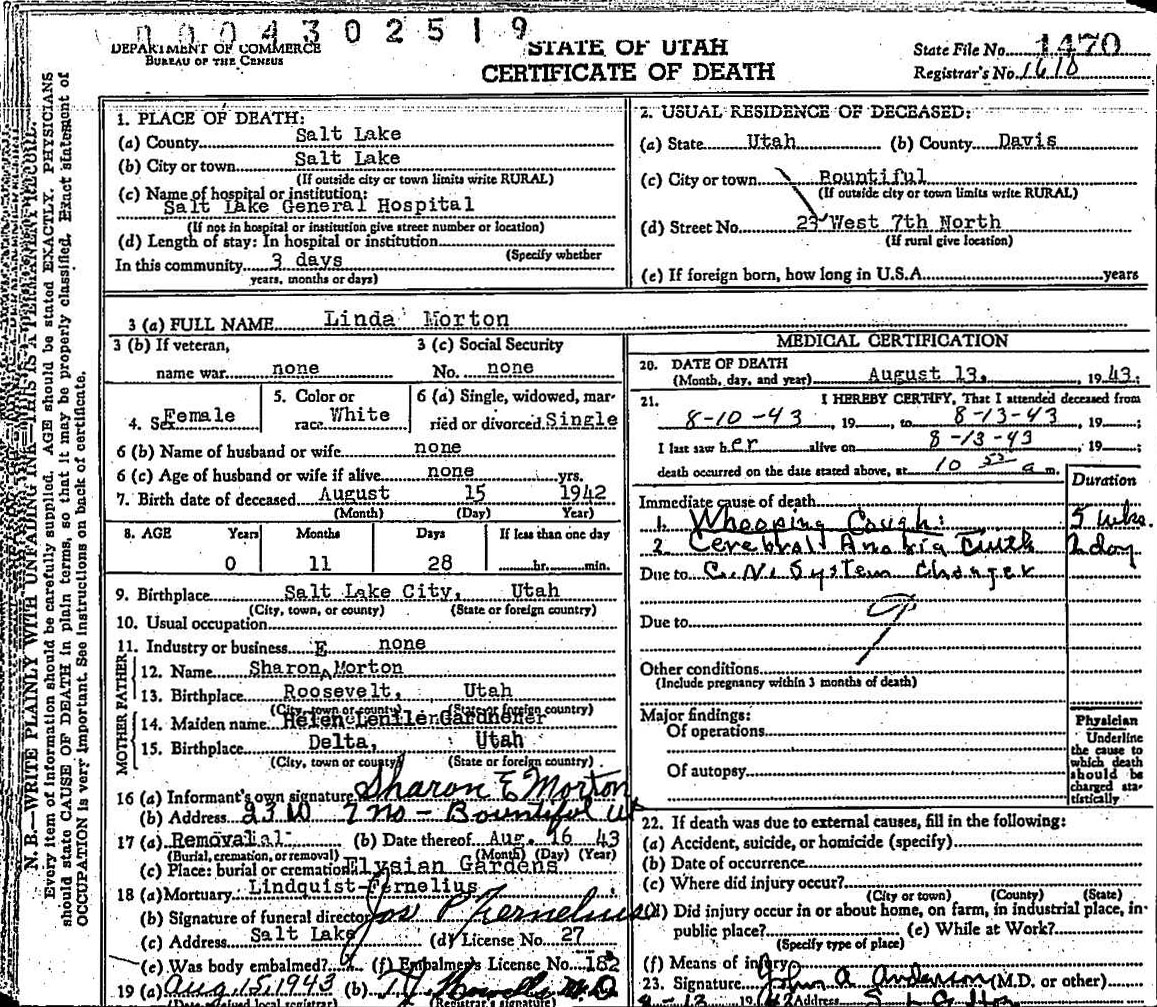 0004302519
DEPARTMENT OF COMMERCE
BUREAU OF THE CENSUS
STATE OF UTAH
CERTIFICATE OF DEATH
State File No. 1470
Registrar's No. 1610
N. B.—WRITE PLAINLY WITH UNFADING INK—THIS IS A PERMANENT RECORD.
Every item of information should be carefully supplied. AGE should be stated EXACTLY. PHYSICIANS
should state CAUSE OF DEATH in plain terms, so that it may be properly classified. Exact statement of
OCCUPATION is very important. See instructions on back of certificate.
1. PLACE OF DEATH:
(a) County Salt Lake
(b) City or town Salt Lake
(If outside city or town limits write RURAL)
(c) Name of hospital or institution:
Salt Lake General Hospital
(If not in hospital or institution give street number or location)
(d) Length of stay: In hospital or institution
(Specify whether
In this community 3 days
years, months or days)
2. USUAL RESIDENCE OF DECEASED:
(a) State Utah (b) County Davis
(c) City or town Bountiful
(If outside city or town limits write RURAL)
(d) Street No. 23 West 7th North
(If rural give location)
(e) If foreign born, how long in U.S.A. years
3 (a) FULL NAME Linda Morton
3 (b) If veteran,
name war none
3 (c) Social Security
No. none
4. Sex Female
5. Color or
race White
6 (a) Single, widowed, mar-
ried or divorced Single
6 (b) Name of husband or wife none
6 (c) Age of husband or wife if alive none yrs.
7. Birth date of deceased August 15 1942
(Month) (Day) Year)
8. AGE Years Months Days If less than one day
0 11 28 hr. min.
9. Birthplace Salt Lake City, Utah
(City, town, or county) (State or foreign country)
10. Usual occupation
11. Industry or business none
E
FATHER
12. Name Sharon Morton
13. Birthplace Roosevelt, Utah
(City, town or county) (State or foreign country)
MOTHER
14. Maiden name Helen
15. Birthplace Delta, Utah
(City, town or county) (State or foreign country)
16 (a) Informant's own signature Sharon E Morton
(b) Address 23 W 7 no - Bountiful Ut
17 (a) Removalal (b) Date thereof Aug. 16 43
(Burial, cremation, or removal) (Month) (Day) (Year)
(c) Place: burial or cremation Elysian Gardens
18 (a) Mortuary Lindquist-Fernelius
(b) Signature of funeral director Jos P Fernelius
(c) Address Salt Lake (d) License No. 27
(e) Was body embalmed? (f) Embalmer's License No. 182
19 (a) Aug 15, 1943 (b)
(Registrar's signature)
MEDICAL CERTIFICATION
20. DATE OF DEATH
(Month, day, and year) August 13, 19 43;
21. I HEREBY CERTIFY, That I attended deceased from
8-10-43, 19 , to 8-13-43, 19 ;
I last saw her alive on 8-13-43, 19 ;
death occurred on the date stated above, at 10 52 a m.
Duration
Immediate cause of death
1. Whooping Cough: 5 wks.
2. Cerebral With 2 day
Due to C. N. System Changes
Due to
Other conditions
(Include pregnancy within 3 months of death)
Major findings:
Of operations
Of autopsy
Physician
Underline
the cause to
which death
should be
charged sta-
tistically
22. If death was due to external causes, fill in the following:
(a) Accident, suicide, or homicide (specify)
(b) Date of occurrence
(c) Where did injury occur?
(City or town) (County) (State)
(d) Did injury occur in or about home, on farm, in industrial place, in
public place? (e) While at Work?
(Specify type of place)
(f) Means of injury
23. Signature John A Anderson (M.D. or other)
Address